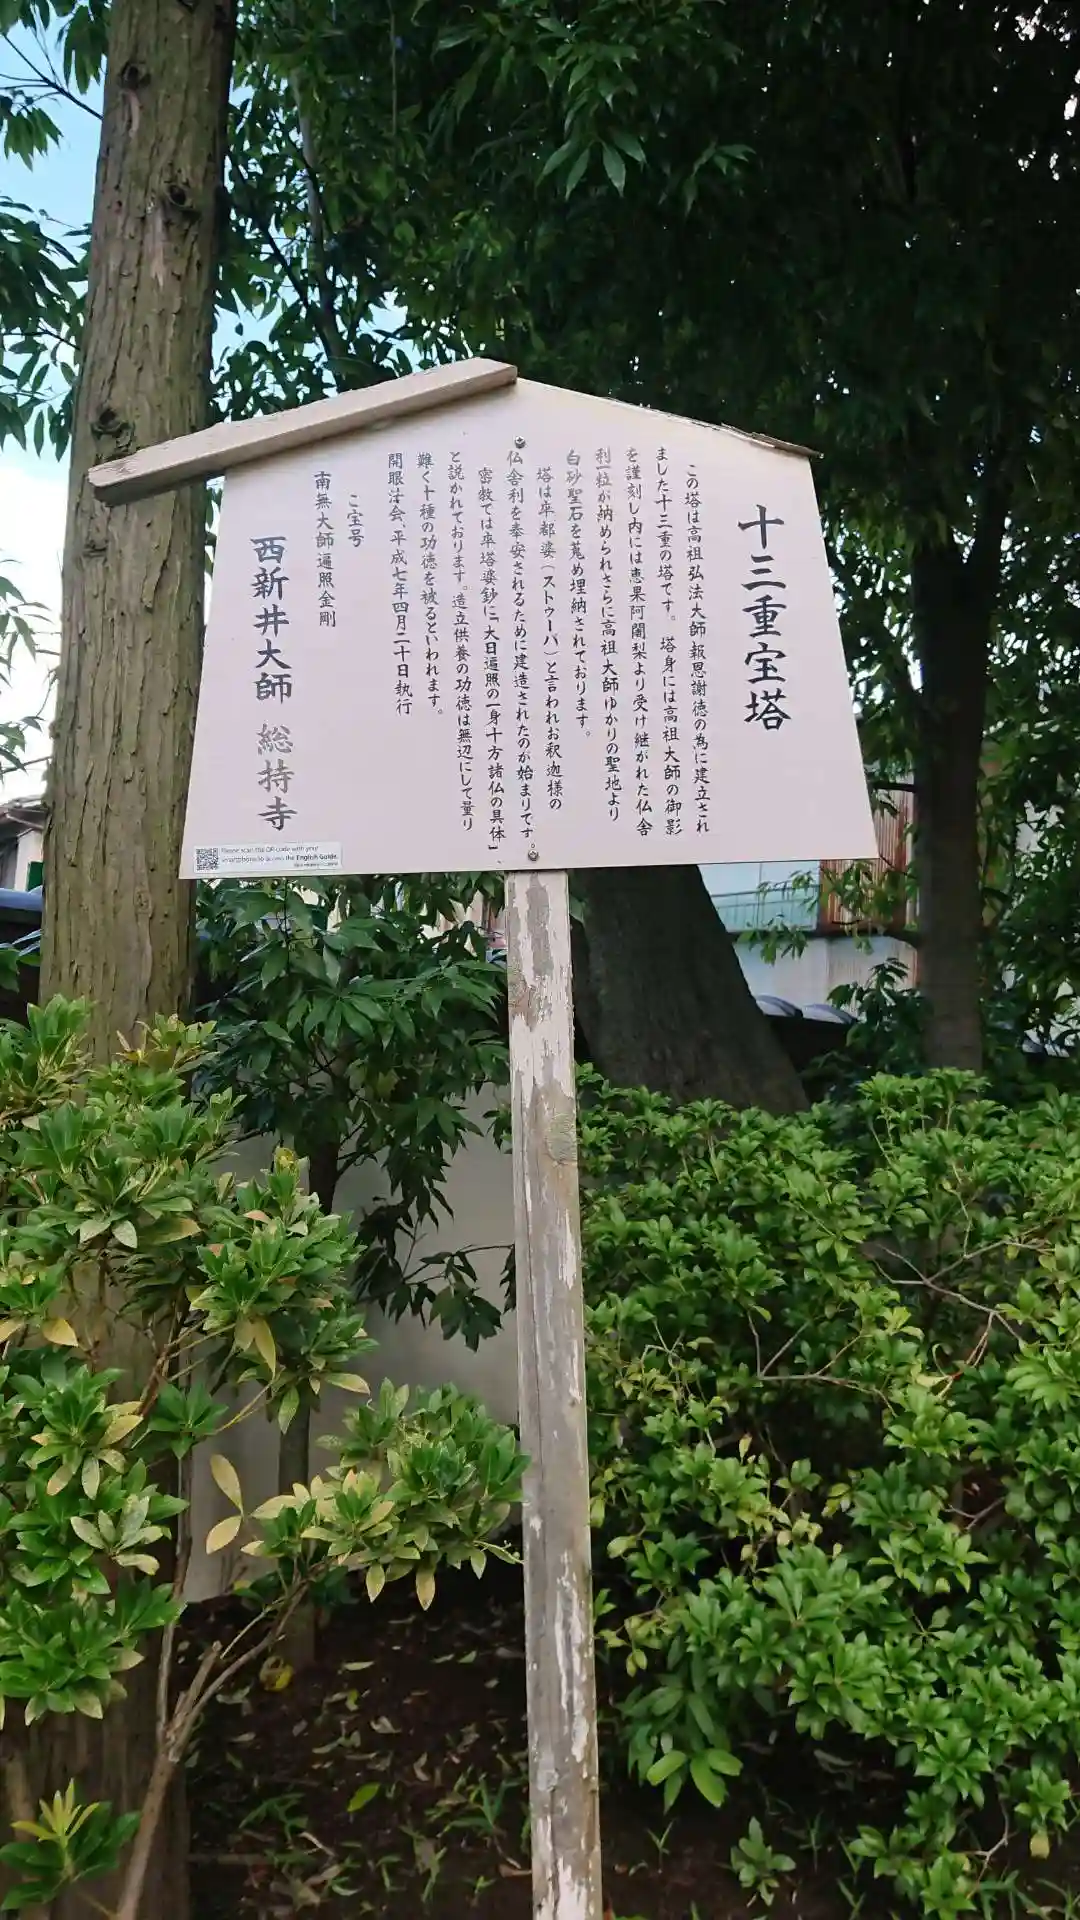 十三重宝塔
この塔は高祖弘法大師報恩謝徳の為に建立され
ました十三重の塔です。塔身には高祖大師の御影
を謹刻し内には恵果阿闍梨より受け継がれた仏舎
利一粒が納められさらに高祖大師ゆかりの聖地より
白砂聖石を蒐め埋納されております。
塔は卒都婆（ストゥーパ）と言われお釈迦様の
仏舎利を奉安されるために建造されたのが始まりです。
密教では卒塔婆鈔に「大日遍照の一身十方諸仏の具体」、
と説かれております。造立供養の功徳は無辺にして量り
難く十種の功徳を被るといわれます。
開眼法会、平成七年四月二十日執行
ご宝号
南無大師遍照金剛
西新井大師 総持寺
Please scan the QR code with your
smartphone to access the English Guide.